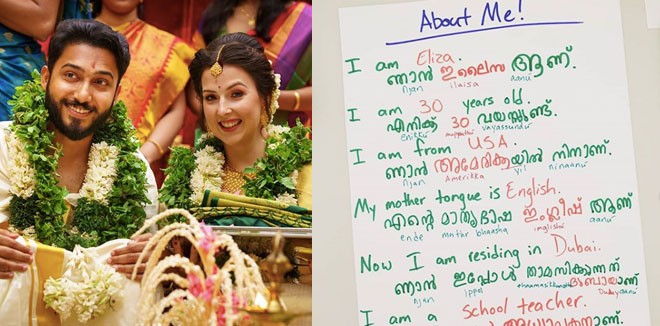 About Me!
I am Eliza.
ഞാൻ ഇലൈസ ആണ്.
Njan ilaisa aanu
I am 30 years old.
എനിക്ക് 30 വയസ്സുണ്ട്.
enikku muppathu vayassundu
I am from USA.
ഞാൻ അമേരിക്കയിൽ നിന്നാണ്.
Njan Amerikka yil ninaanu
My mother tongue is English.
എന്റെ മാതൃഭാഷ ഇംഗ്ലീഷ് ആണ്
ende mathr bhaasha inglishu aanu
Now I am residing in Dubai.
ഞാൻ ഇപ്പോൾ താമസിക്കുന്നത് ദുബായാണ്
Njan ippol
I am a school teacher.